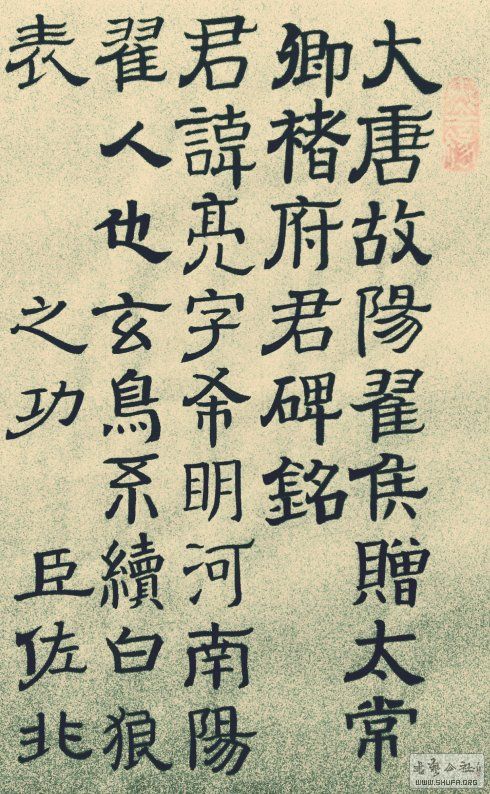 大唐故陽翟侯贈太常
卿褚府君碑銘
君諱亮字希明河南陽
翟人也玄鳥系續白狼
表之功臣佐北
WWW.SHUFA.ORG